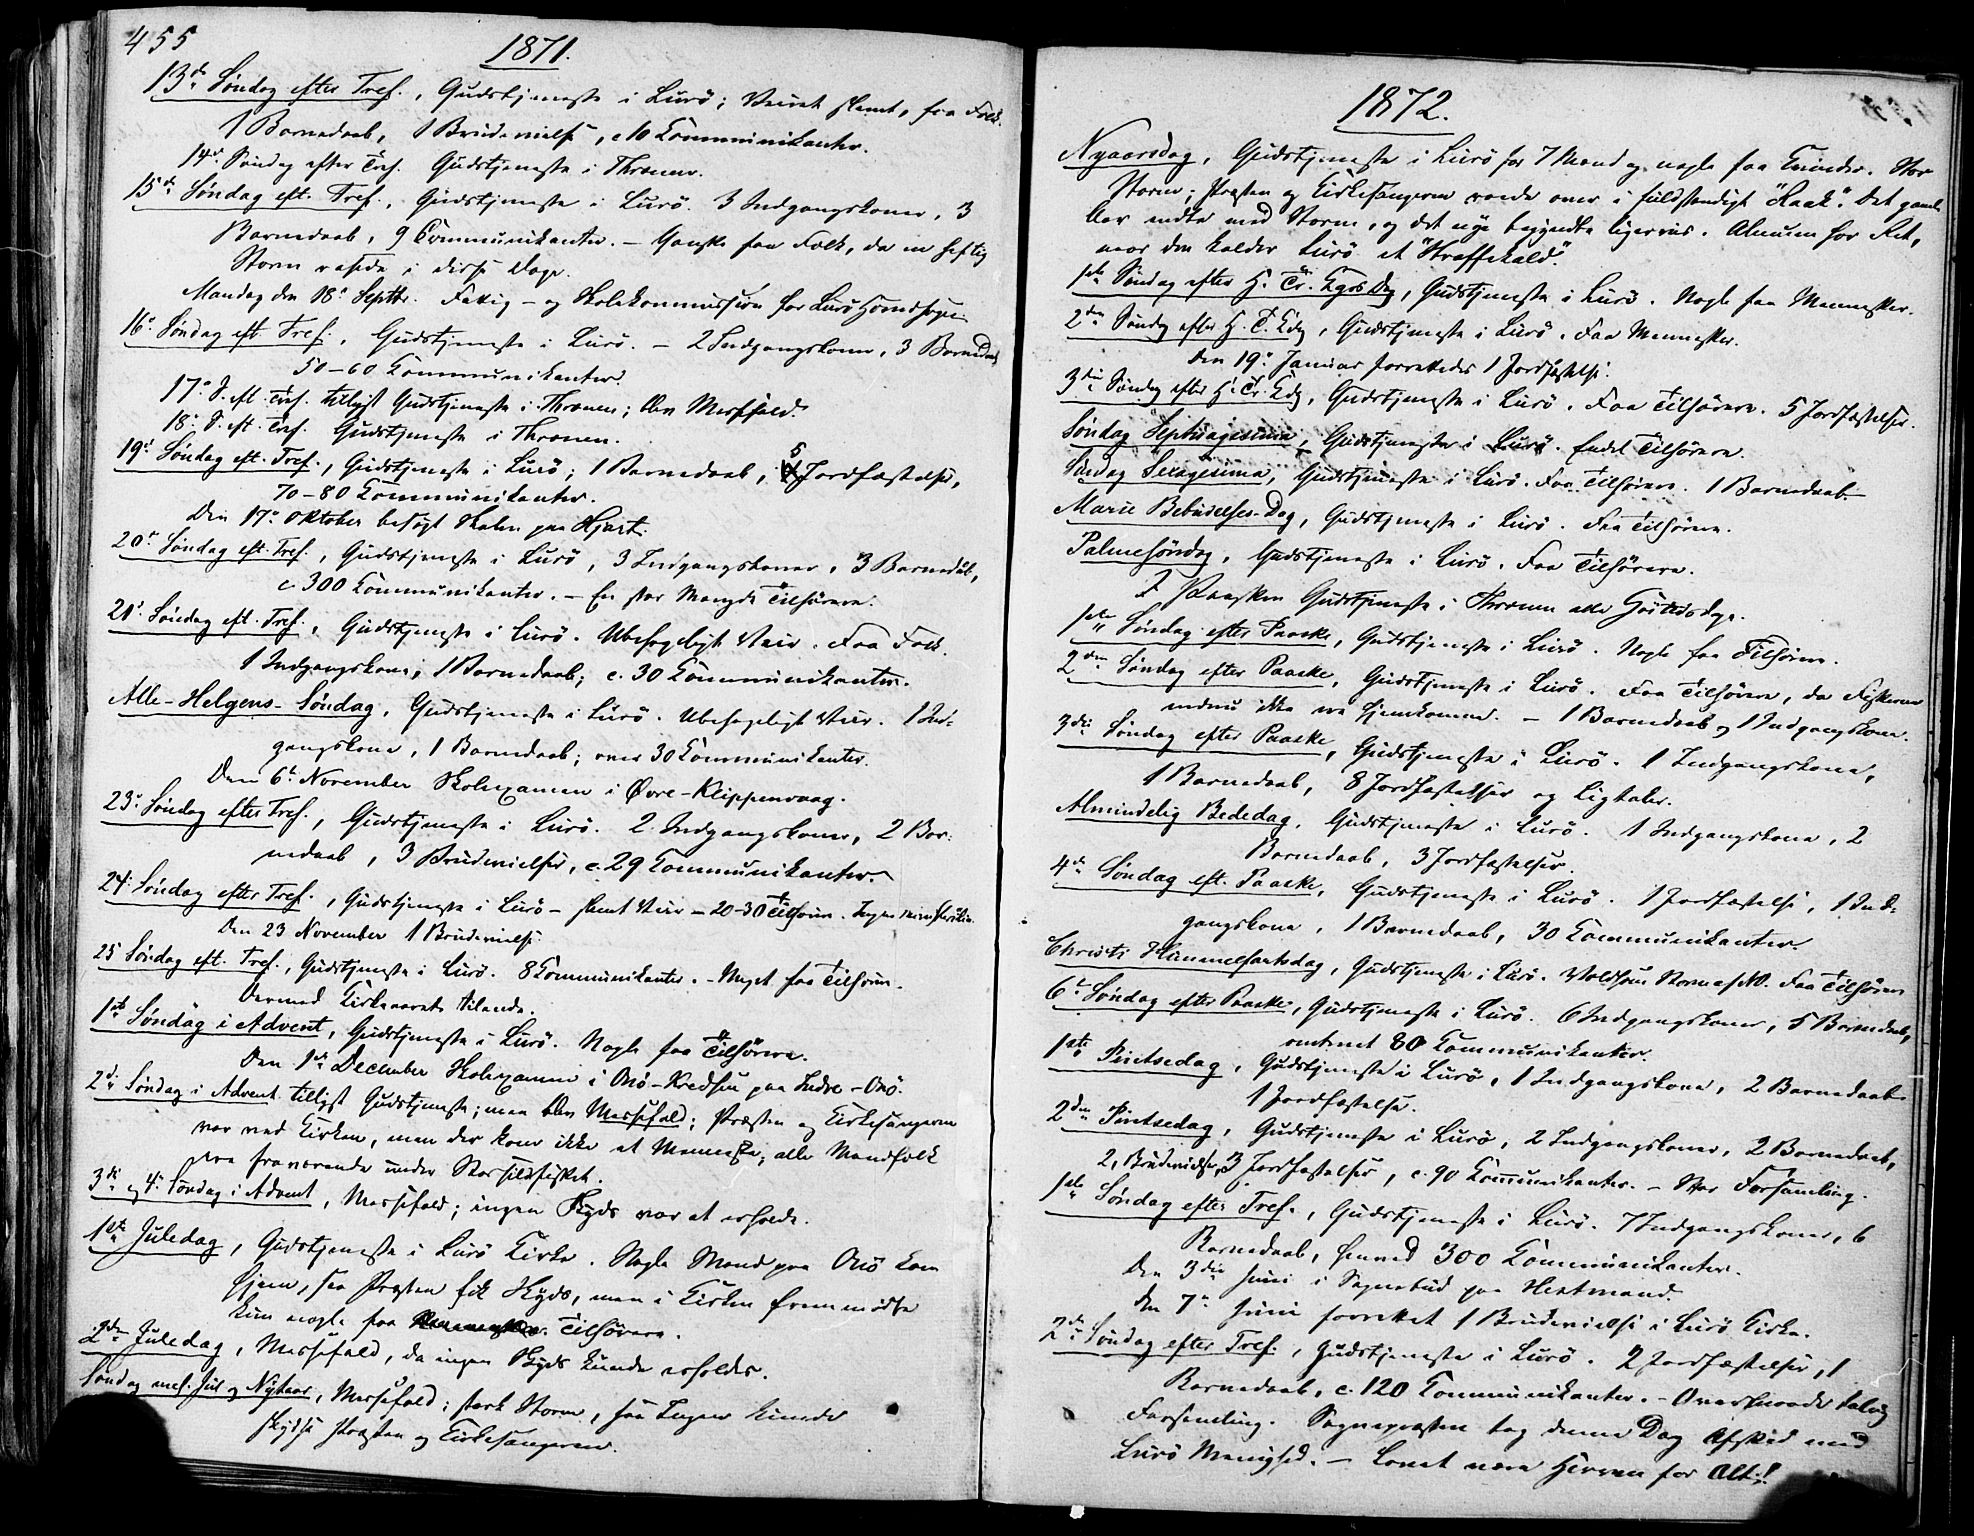 455
1871.
13de Søndag efter Tref., Gudstjeneste i Lurö; Veiret slemt, faa Folk.
1 Barnedaab, 1 Brudevielse, c. 10 Communikanter.
14de Søndag efter Tref. Gudstjeneste i Thrænen.
15de Søndag eft. Tref., Gudstjeneste i Lurö. 3 Indgangskoner, 3
Barnedaab, 9 Communikanter. – Ganske faa Folk, da en heftig
Storm rasede i disse Dage.
Mandag den 18de Septbr. Fattig- og Skolekommission for Lurö Hovedsogn.
16de Søndag eft Tref., Gudstjeneste i Lurö. – 2 Indgangskoner, 3 Barnedaab
50–60 Communikanter.
17de S. eft Tref. tillyst Gudstjeneste i Thrænen; blev Messefald.
18de S. eft. Tref. Gudstjeneste i Thrænen.
19de Søndag eft. Tref., Gudstjeneste i Lurö; 1 Barnedaab, 5 Jordfæstelser,
70–80 Communikanter.
Den 17de Oktober besøgt Skolen paa Hjart.
20de Søndag eft. Tref., Gudstjeneste i Lurö, 3 Indgangskoner, 3 Barnedaab,
c. 300 Communikanter. – En stor Mængde Tilhörere.
21de Søndag eft. Tref., Gudstjeneste i Lurö. Ubehageligt Veir. Faa Folk.
1 Indgangskone, 1 Barnedaab; c. 30 Communikanter.
Alle-Helgens-Søndag, Gudstjeneste i Lurö. Ubehageligt Veir. 1 Ind-
gangskone, 1 Barnedaab; over 30 Communikanter.
Den 6te November Skolexamen i Øvre-Klippenvaag.
23de Søndag efter Tref., Gudstjeneste i Lurö. 2 Indgangskoner, 2 Bar-
nedaab, 3 Brudevielser, c. 29 Communikanter.
24de Søndag efter Tref., Gudstjeneste i Lurö – slemt Veir – 20-30 Tilhörere. Ingen
Den 23 November 1 Brudevielse.
25 Søndag eft. Tref., Gudstjeneste i Lurö. 8 Communikanter. – Meget faa Tilhörere.
Dermed Kirkeaaret tilende.
1ste Søndag i Advent, Gudstjeneste i Lurö. Nogle faa Tilhörere.
Den 1ste December Skolexamen i Onö-Kredsen paa Indre-Onö.
2den Søndag i Advent tillyst Gudstjeneste; men blev Messefald; Præsten og Kirkesangeren
var ved Kirken, men der kom ikke et Menneske, alle Mandfolk
vare fraværende under Storsildfisket.
3die og 4de Søndag i Advent, Messefald; ingen Skyds var at erholde.
1ste Juledag, Gudstjeneste i Lurö Kirke. Nogle Mænd paa Onö kom
hjem, saa Præsten fik Skyds, men i Kirken fremmødte
kun nogle faa Tilhörere.
2den Juledag, Messefald, da ingen Skyds kunde erholdes.
Søndag mel. Jul og Nytaar, Messefald; stærk Storm, saa Ingen kunde
skydse Præsten og Kirkesangeren.
1872.
Nyaarsdag, Gudstjeneste i Lurö for 7 Mænd og nogle faa Kvinder. Stor
Storm; Præsten og Kirkesangeren roede over i fuldstændigt "Raak". Det gamle
Aar endte med Storm, og det nye begyndte ligervis. Almuen har Ret,
naar den kalder Lurö et "Straffekald".
1ste Søndag efter H. Tr. Kgrs Dag, Gudstjeneste i Lurö. Nogle faa Mennesker.
2den Søndag efter H. T. Kdg, Gudstjeneste i Lurö. Faa Mennesker.
Den 19de Januar forrettedes 1 Jordfæstelse.
3die Søndag efter H. Tr. Kdg, Gudstjeneste i Lurö. Faa Tilhörere. 5 Jordfæstelser.
Søndag Septuagesima, Gudstjeneste i Lurö. Endel Tilhörere.
Søndag Sexagesima, Gudstjeneste i Lurö. Faa Tilhörere. 1 Barnedaab.
Mariæ Bebudelses-Dag, Gudstjeneste i Lurö. Faa Tilhörere.
Palmesöndag, Gudstjeneste i Lurö. Faa Tilhörere.
I Paasken Gudstjeneste i Thrænen alle
1ste Söndag efter Paaske, Gudstjeneste i Lurö. Nogle faa Tilhörere.
2den Söndag efter Paaske, Gudstjeneste i Lurö. Faa Tilhörere, da Fiskerne
endnu ikke ere hjemkomne. – 1 Barnedaab og 1 Indgangskone.
3die Söndag efter Paaske, Gudstjeneste i Lurö. 1 Indgangskone,
1 Barnedaab, 8 Jordfæstelser og Ligtaler.
Almindelig Bededag, Gudstjeneste i Lurö. 1 Indgangskone, 2
Barnedaab, 3 Jordfæstelser.
4de Søndag eft. Paaske, Gudstjeneste i Lurö. 1 Jordfæstelse, 1 Ind-
gangskone, 1 Barnedaab, 30 Communikanter.
Christi Himmelfartsdag, Gudstjeneste i Lurö. Voldsom Storm af NO. Faa Tilhörere
6te Søndag efter Paaske, Gudstjeneste i Lurö. 6 Indgangskoner, 5 Barnedaab,
omtrent 80 Communikanter.
1ste Pintsedag, Gudstjeneste i Lurö, 1 Indgangskone, 2 Barnedaab
1 Jordfæstelse.
2den Pintsedag, Gudstjeneste i Lurö, 2 Indgangskoner, 2 Barnedaab,
2 Brudevielser, 3 Jordfæstelser, c. 90 Communikanter. – Stor Forsamling.
1ste Søndag efter Tref., Gudstjeneste i Lurö. 7 Indgangskoner, 6
Barnedaab, henved 300 Communikanter.
Den 3die Juni i Sognebud paa Hestmand.
Den 7de Juni forrettet 1 Brudevielse i Lurö Kirke.
2den Søndag efter Tref., Gudstjeneste i Lurö. 2 Jordfæstelser, 1
Barnedaab, c. 120 Communikanter. – Overhovedt talrig
Forsamling. Sognepræsten tog denne Dag Afsked med
Lurö Menighed. – Lovet være Herren for Alt!